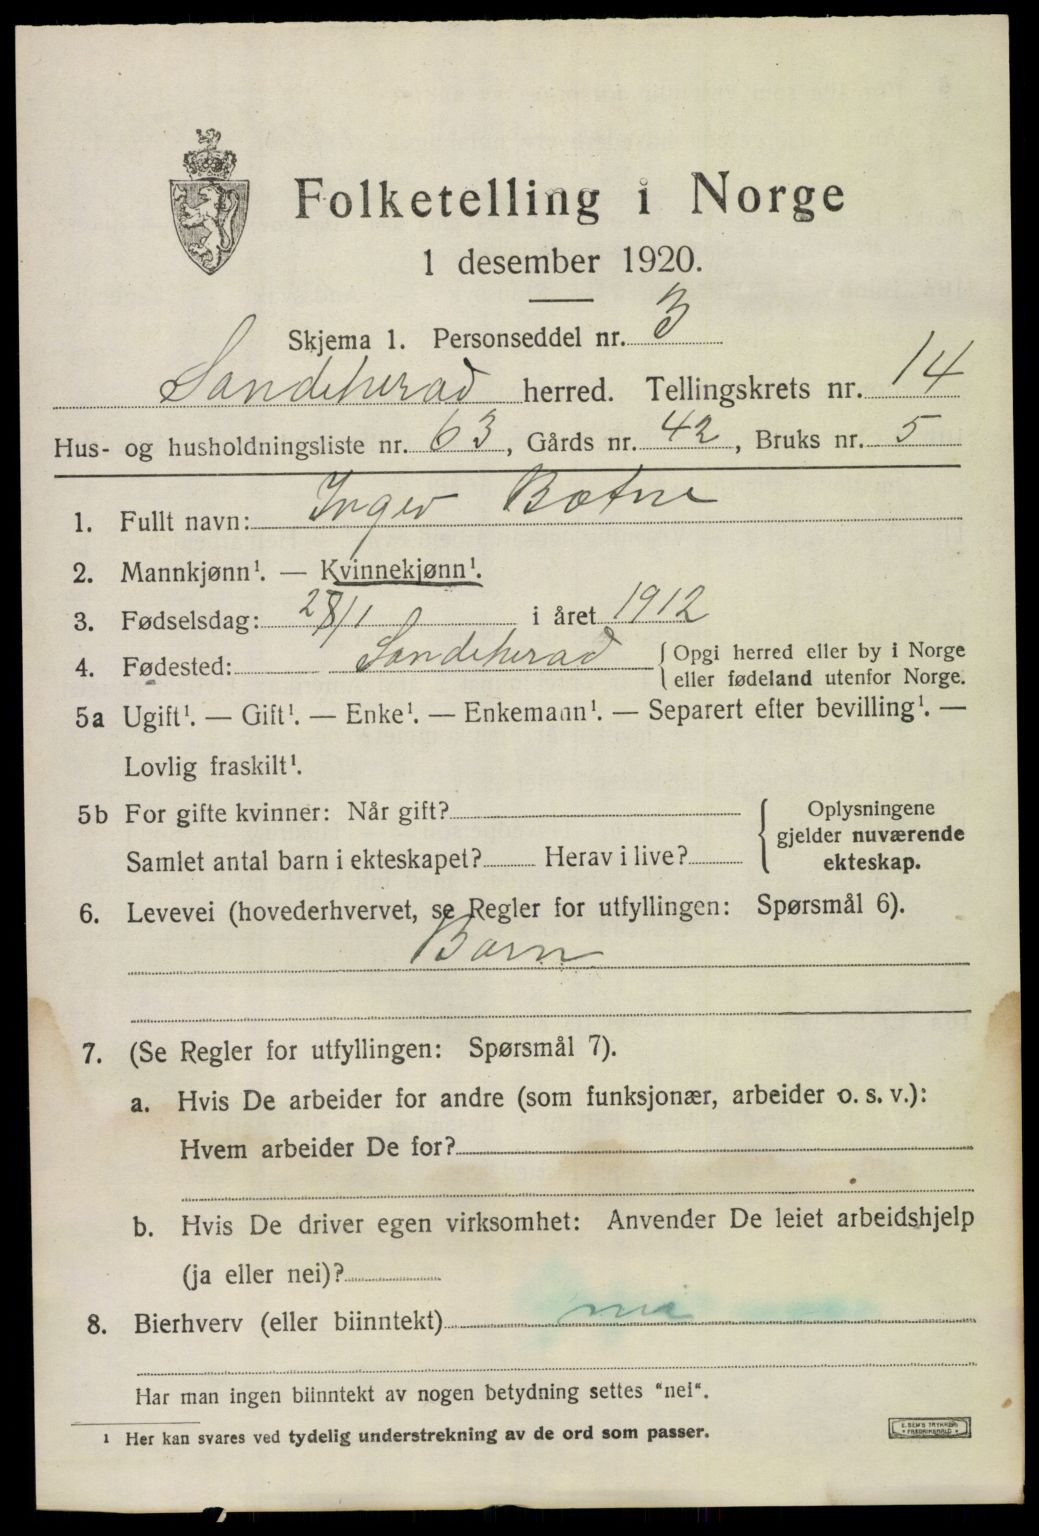 Folketelling i Norge
1 desember 1920.
Skjema 1. Personseddel nr. 3
Sandeherad herred. Tellingskrets nr. 14
Hus- og husholdningsliste nr. 63, Gårds nr. 42, Bruks nr. 5
1. Fullt navn: Bøtne
2. Mannkjønn¹. — Kvinnekjønn¹.
3. Fødselsdag: 28/1 i året 1912
4. Fødested: Sandeherad { Opgi herred eller by i Norge
eller fødeland utenfor Norge.
5a Ugift¹. — Gift¹. — Enke¹. — Enkemann¹. — Separert efter bevilling¹. —
Lovlig fraskilt¹.
5b For gifte kvinner: Når gift?
Samlet antal barn i ekteskapet? Herav i live?
{ Oplysningene
gjelder nuværende
ekteskap.
6. Levevei (hovederhvervet, se Regler for utfyllingen: Spørsmål 6).
Barn
7. (Se Regler for utfyllingen: Spørsmål 7).
a. Hvis De arbeider for andre (som funksjonær, arbeider o. s. v.):
Hvem arbeider De for?
b. Hvis De driver egen virksomhet: Anvender De leiet arbeidshjelp
(ja eller nei)?
8. Bierhverv (eller biinntekt) nei
Har man ingen biinntekt av nogen betydning settes "nei".
¹ Her kan svares ved tydelig understrekning av de ord som passer.
E. SEM'S TRYKKERI
FREDRIKSHALD